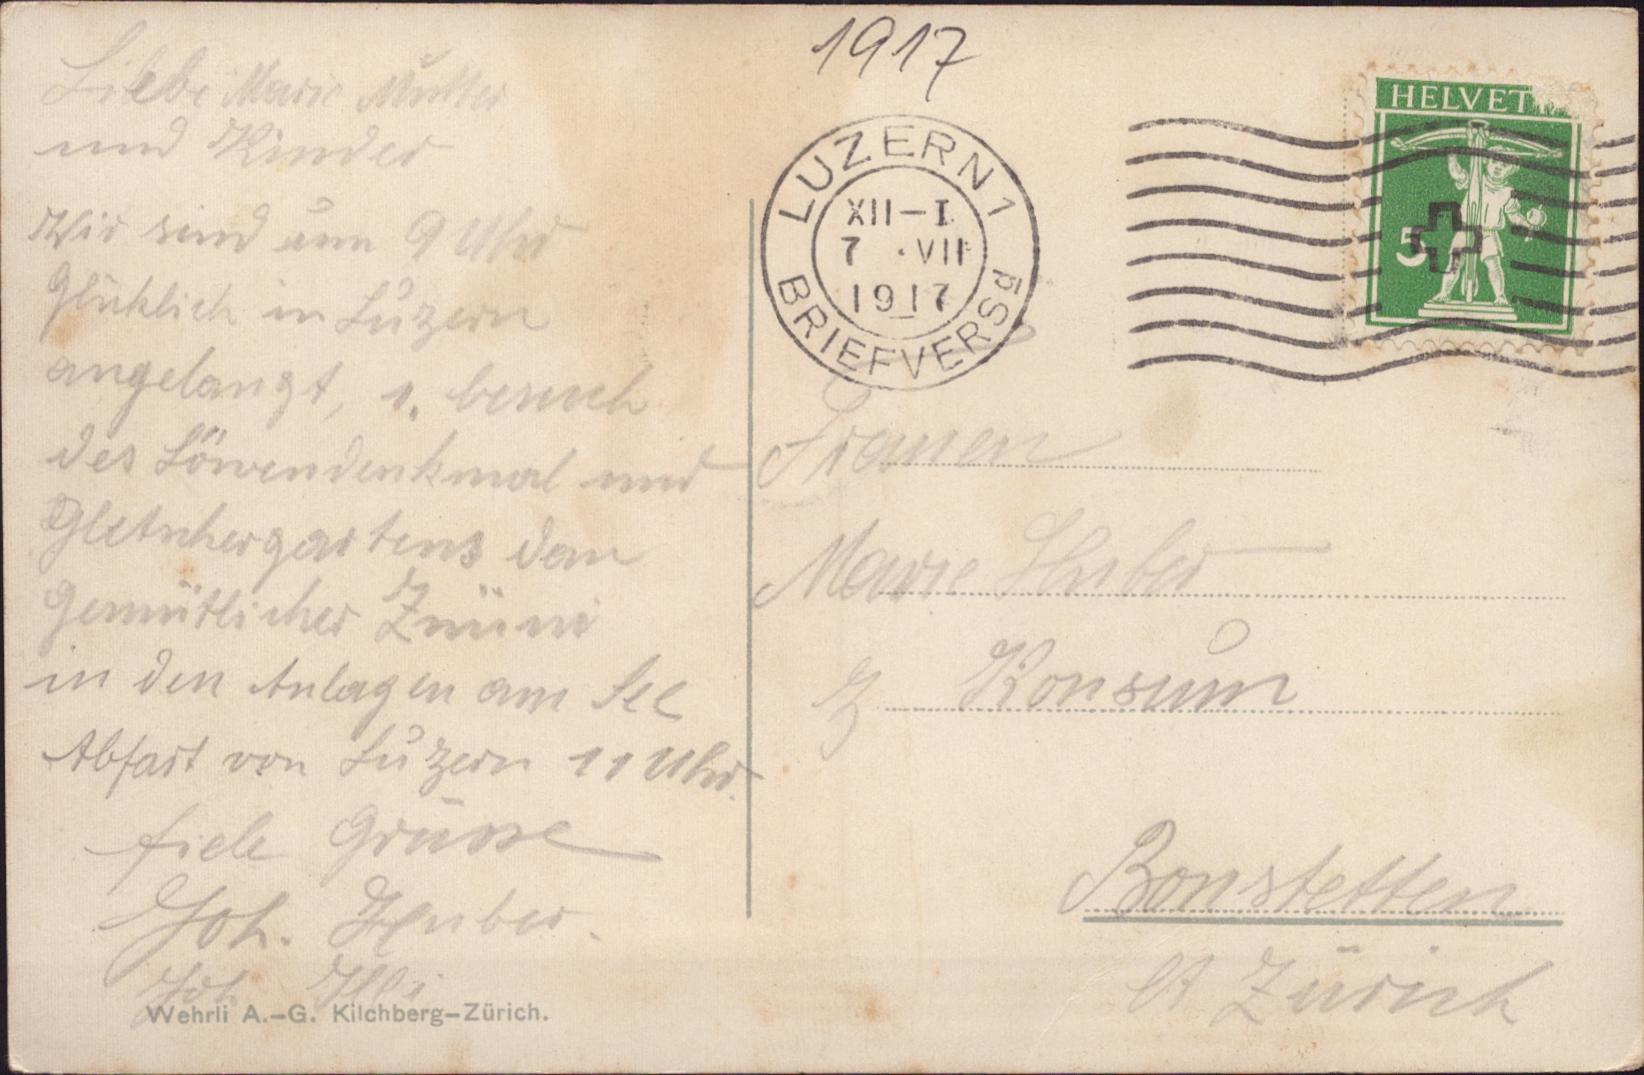 1917
Liebe Marie Mutter
und Kinder
Wir sind um 9 Uhr
Glücklich in Luzern
angelangt, besuch
des Löwendenkmal und
Gletschergartens dan
gemütlicher Znüni
in den Anlagen am See
Abfart von Luzern 11 Uhr.
fiele Grüsse
Joh. Huber.
Joh.
Wehrli A.-G. Kilchberg-Zürich.
LUZERN 1
XII-I
7 ·VII
1917
BRIEFVERSD
HELVET
5
Frauen
Marie Huber
z Konsum
Bonstetten
Kt Zürich